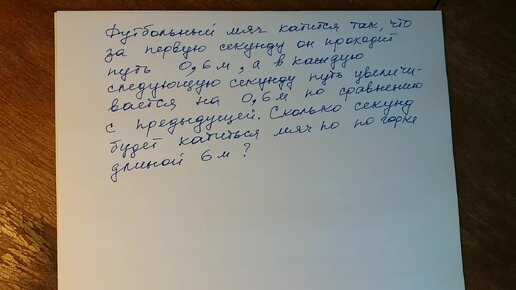 Футбольный мяч катится так, что
за первую секунду он проходит
путь 0,6 м, а в каждую
следующую секунду путь увеличи-
вается на 0,6 м по сравнению
с предыдущей. Сколько секунд
будет катиться мяч по по горке
длиной 6 м?